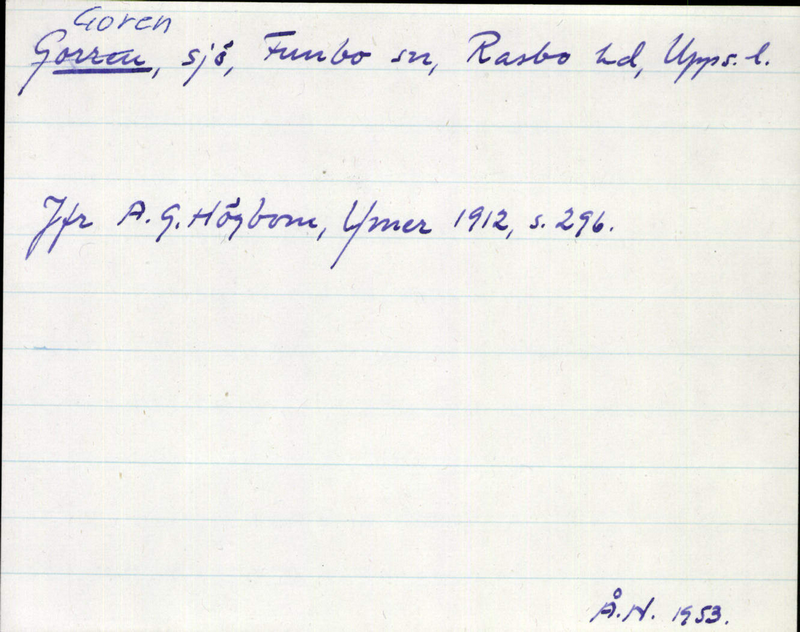 Goren
Gorren, sjö, Funbo sn, Rasbo hd, Upps. l.
Jfr A. G. Högbom, Ymer 1912, s. 296.
Å. H. 1953.